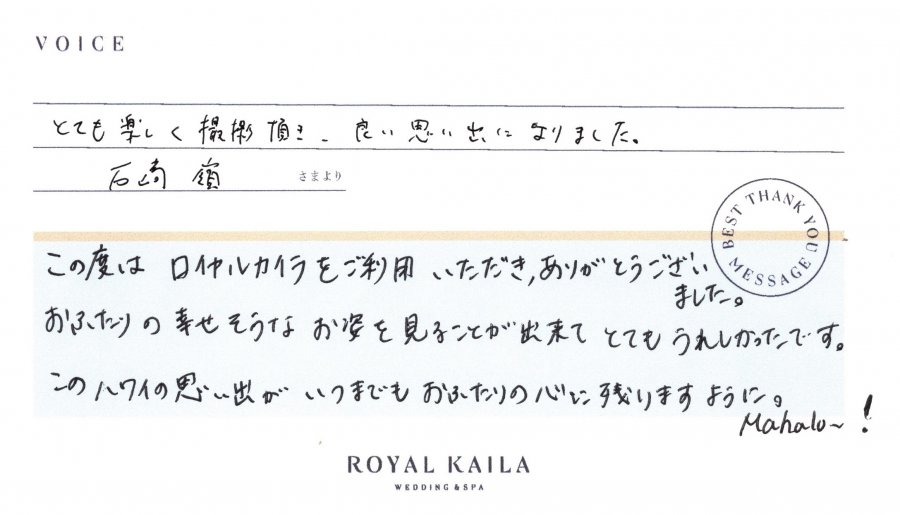 VOICE
とても楽しく撮影頂き、良い思い出になりました。
石崎 さまより
BEST THANK YOU MESSAGE
この度は ロイヤルカイラをご利用 いただき,ありがとうござい
ました。
おふたりの幸せそうな お姿を見ることが出来て とても うれしかったです。
このハワイの思い出が いつまでも おふたりの心に残りますように。
Mahalo~!
ROYAL KAILA
WEDDING & SPA